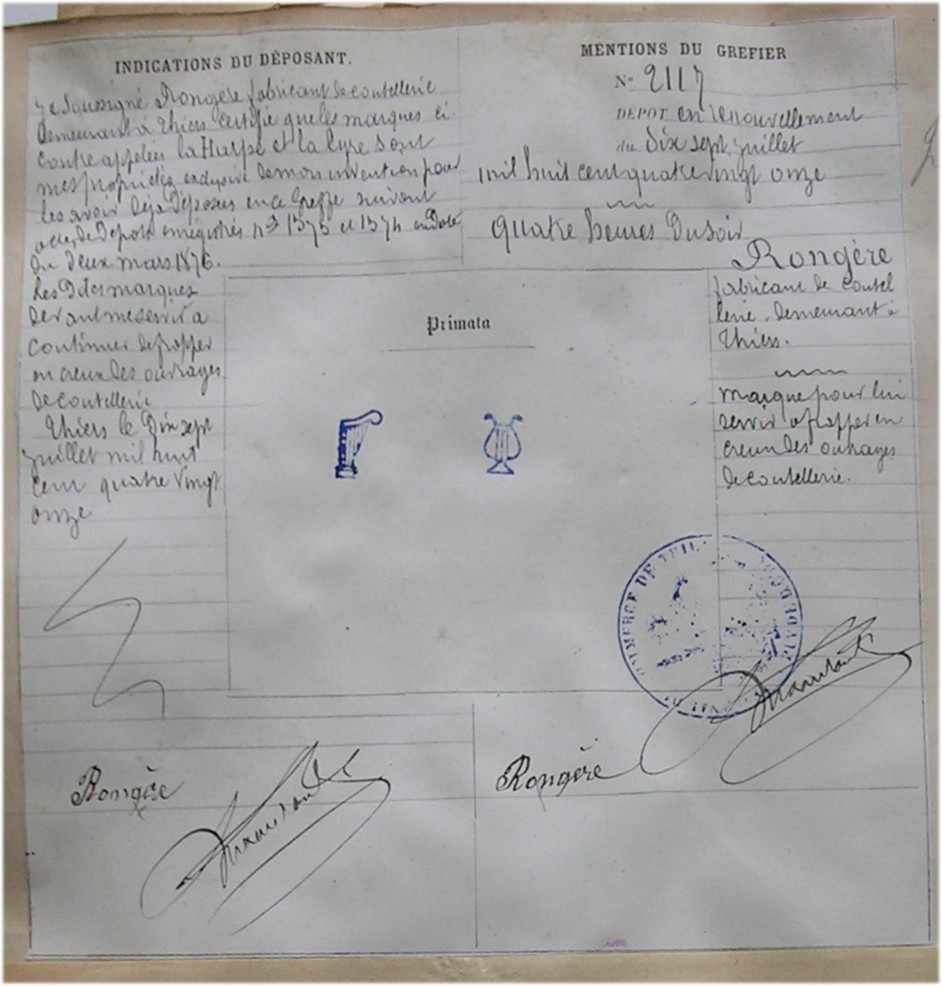 INDICATIONS DU DÉPOSANT.
Je Soussigné Rongère fabricant de coutellerie
demeurant à Thiers certifie que les marques ci
contre appelées la Harpe et la Lyre sont
mes propriétés exclusive de mon invention pour
les avoir déja déposées en ce Greffe suivant
actes de Dépots enregistrés nos 1373 et 1374 en Date
du Deux mars 1876.
Les Dites marques
devant me servir a
continuer de frapper
en creux des ouvrages
de coutellerie
Thiers le Dix sept
juillet mil huit
cent quatre vingt
onze
MENTIONS DU GREFIER
No 2117
DÉPOT en renouvellement
du Dix sept juillet
mil huit cent quatre vingt onze
quatre heures Du soir
Rongère
fabricant de coutel
lerie. demeurant à
Thiers.
Marque pour lui
servir a frapper en
creux des ouvrages
de coutellerie.
Primata
COMMERCE DE THIERS
Rongère
Rongère